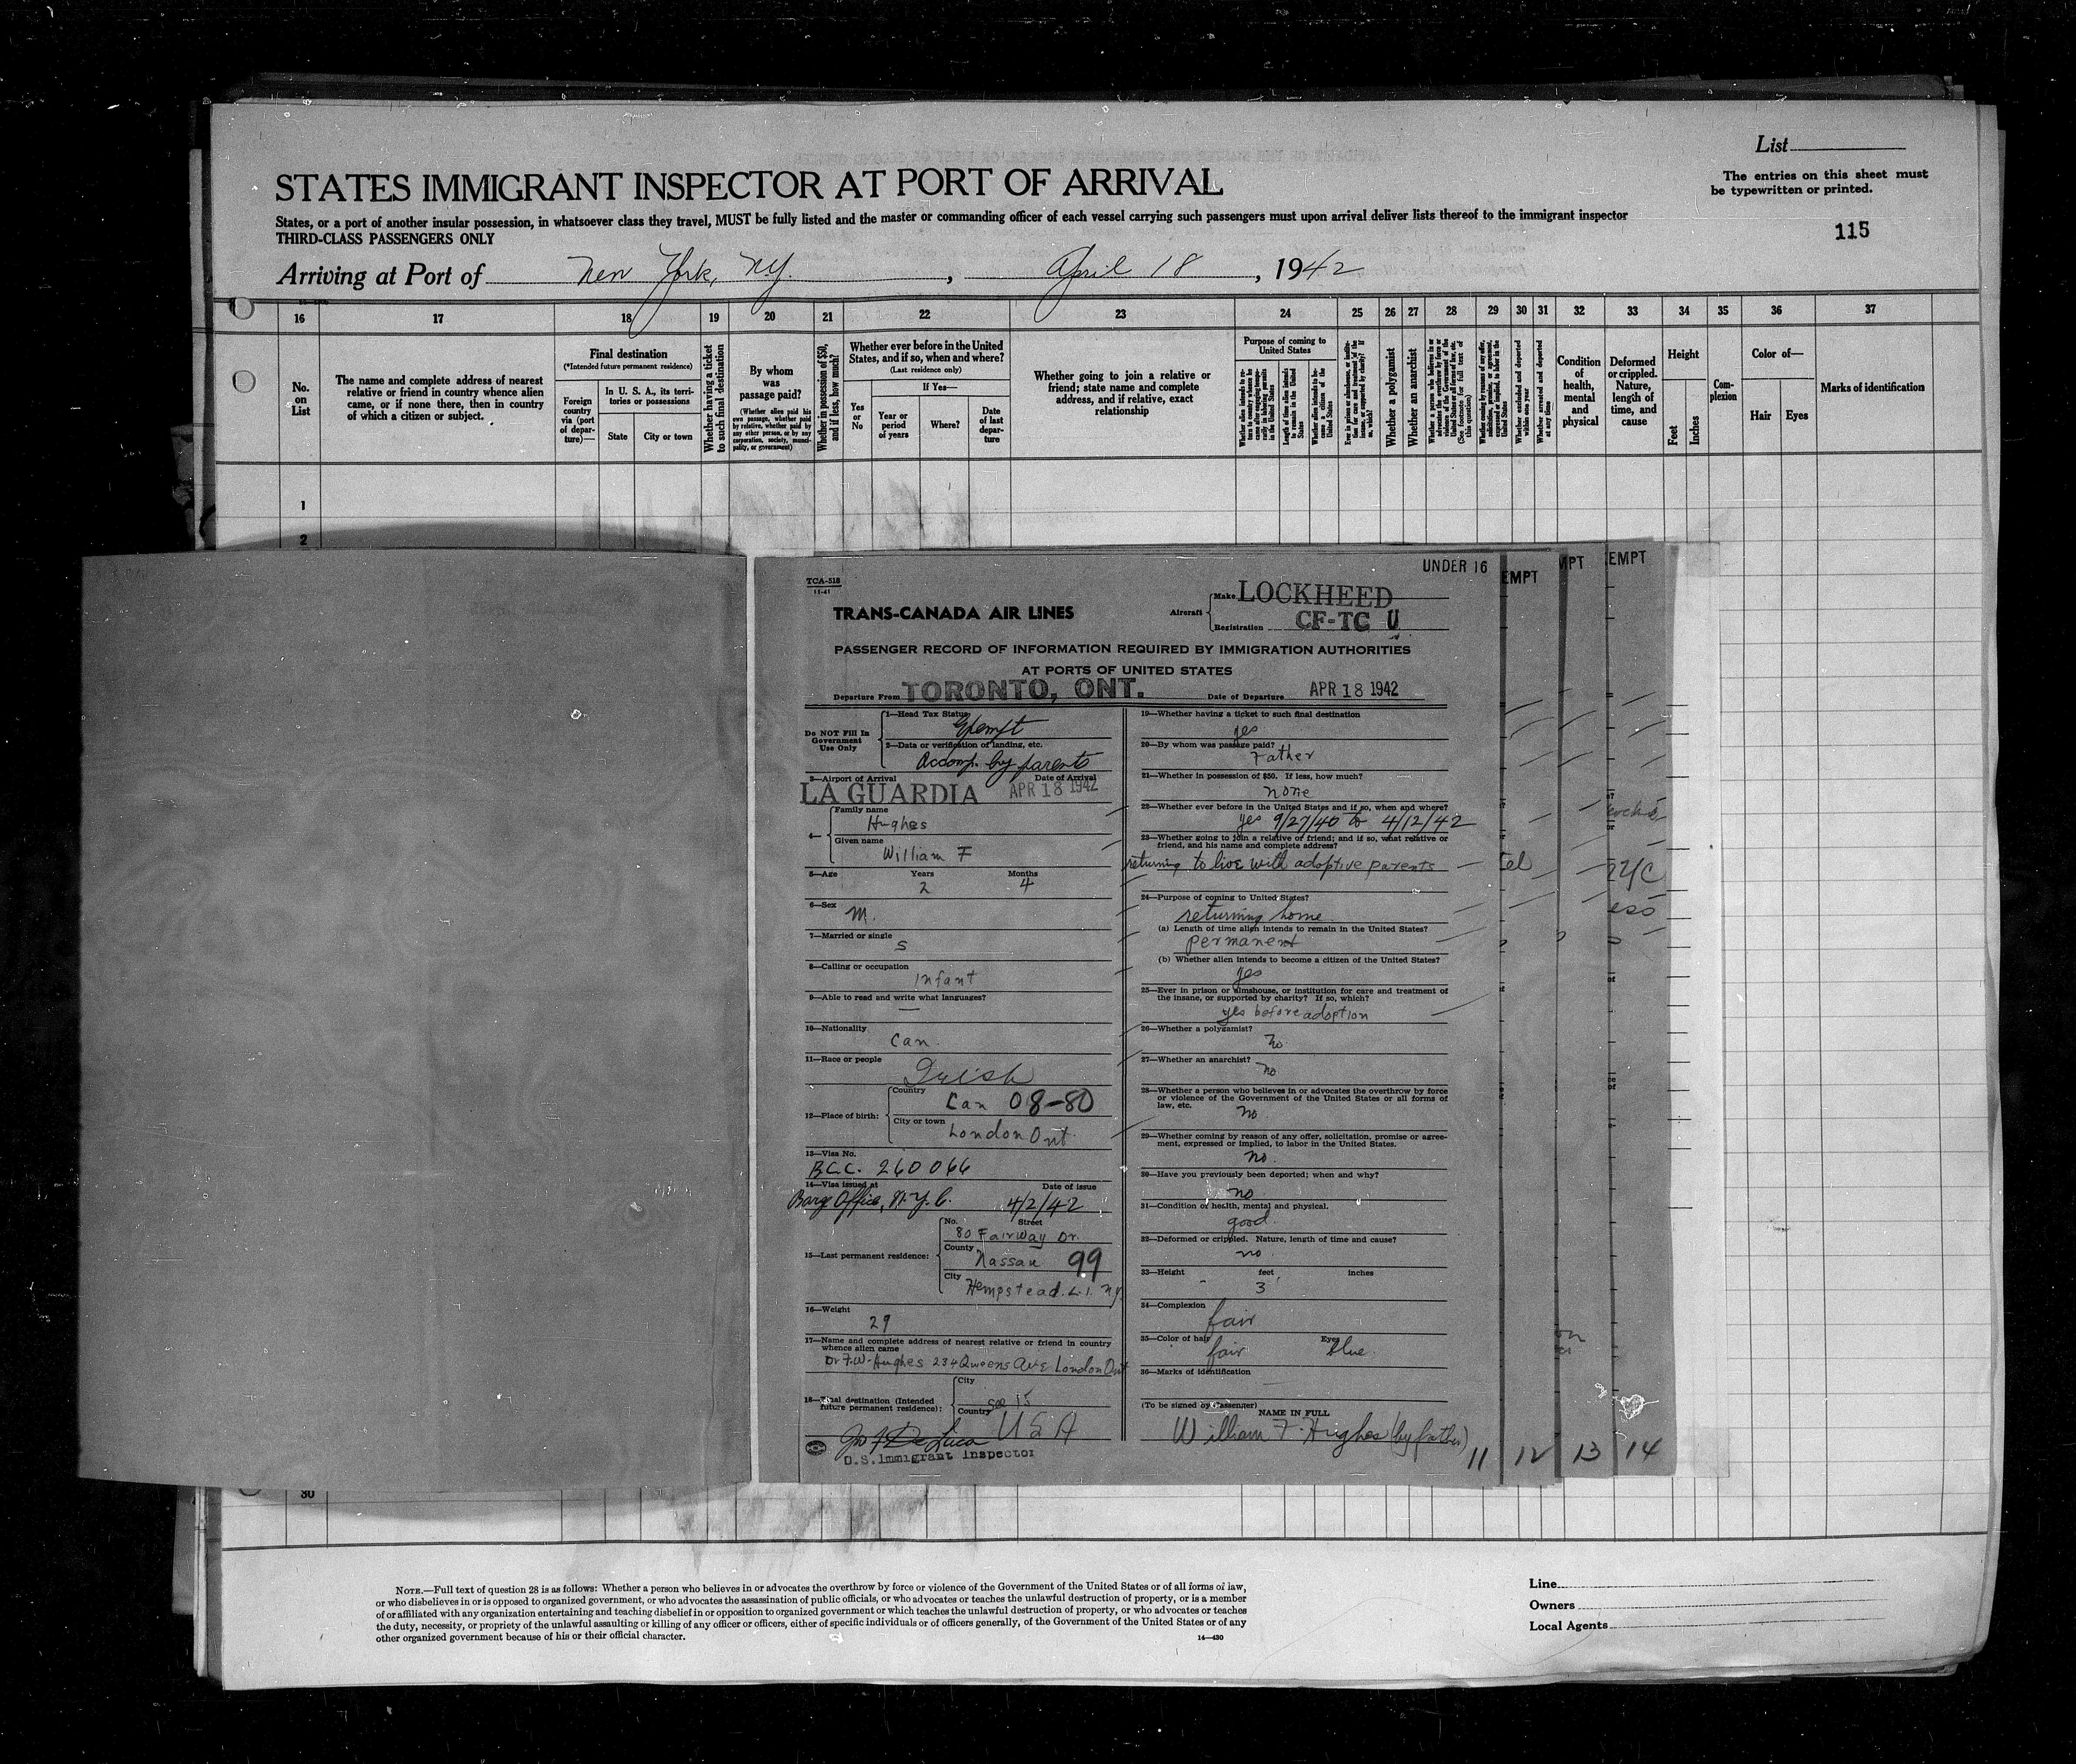 List
The entries on this sheet must
be typewritten or printed.
STATES IMMIGRANT INSPECTOR AT PORT OF ARRIVAL
States, or a port of another insular possession, in whatsoever class they travel, MUST be fully listed and the master or commanding officer of each vessel carrying such passengers must upon arrival deliver lists thereof to the immigrant inspector
THIRD-CLASS PASSENGERS ONLY
115
Arriving at Port of New York, N.Y. , April 18 , 1942
16 17 18 19 20 21 22 23 24 25 26 27 28 29 30 31 32 33 34 35 36 37
No. on List
The name and complete address of nearest relative or friend in country whence alien came, or if none there, then in country of which a citizen or subject.
Final destination
(*Intended future permanent residence)
Foreign country via (port of departure)—
In U. S. A., its territories or possessions
State
City or town
Whether having a ticket to such final destination
By whom was passage paid?
(Whether alien paid his own passage, whether paid by relative, whether paid by any other person, or by any corporation, society, municipality, or government)
Whether in possession of $50, and if less, how much?
Whether ever before in the United States, and if so, when and where?
(Last residence only)
Yes or No
If Yes—
Year or period of years
Where?
Date of last departure
Whether going to join a relative or friend; state name and complete address, and if relative, exact relationship
Purpose of coming to United States
Whether a polygamist
Whether an anarchist
Condition of health, mental and physical
Deformed or crippled. Nature, length of time, and cause
Height
Feet
Inches
Complexion
Color of—
Hair
Eyes
Marks of identification
1
2
TCA-518
11-41
UNDER 16
EMPT
MPT
EMPT
TRANS-CANADA AIR LINES
Aircraft
Make LOCKHEED
Registration CF-TC U
PASSENGER RECORD OF INFORMATION REQUIRED BY IMMIGRATION AUTHORITIES
AT PORTS OF UNITED STATES
Departure From TORONTO, ONT. Date of Departure APR 18 1942
Do NOT Fill In
Government
Use Only
1—Head Tax Status
Exempt
2—Data or verification of landing, etc.
Accomp. by parents
3—Airport of Arrival Date of Arrival
LA GUARDIA APR 18 1942
4—
Family name
Hughes
Given name
William F
5—Age Years Months
2 4
6—Sex
M.
7—Married or single
S
8—Calling or occupation
Infant
9—Able to read and write what languages?
—
10—Nationality
Can.
11—Race or people
Irish
12—Place of birth:
Country
Can 08-80
City or town
London Ont.
13—Visa No.
B.C.C. 260066
14—Visa issued at Date of issue
Barge Office, N.Y.C. 4/2/42
15—Last permanent residence:
No. Street
80 Fairway Dr.
County
Nassau 99
City
Hempstead. L.I. N.Y.
16—Weight
29
17—Name and complete address of nearest relative or friend in country
whence alien came
Dr F.W. Hughes 234 Queens Ave London Ont
18—Final destination (Intended
future permanent residence):
City
See 15
Country
USA
U.S. Immigrant Inspector
19—Whether having a ticket to such final destination
yes
20—By whom was passage paid?
Father
21—Whether in possession of $50. If less, how much?
none
22—Whether ever before in the United States and if so, when and where?
yes 9/27/40 to 4/12/42
23—Whether going to join a relative or friend; and if so, what relative or
friend, and his name and complete address?
returning to live with adoptive parents —
24—Purpose of coming to United States?
returning home
(a) Length of time alien intends to remain in the United States?
permanent
(b) Whether alien intends to become a citizen of the United States?
yes
25—Ever in prison or almshouse, or institution for care and treatment of
the insane, or supported by charity? If so, which?
yes before adoption
26—Whether a polygamist?
no
27—Whether an anarchist?
no
28—Whether a person who believes in or advocates the overthrow by force
or violence of the Government of the United States or all forms of
law, etc.
no
29—Whether coming by reason of any offer, solicitation, promise or agree-
ment, expressed or implied, to labor in the United States.
no.
30—Have you previously been deported; when and why?
no
31—Condition of health, mental and physical.
good.
32—Deformed or crippled. Nature, length of time and cause?
no.
33—Height feet inches
3'
34—Complexion
fair
35—Color of hair Eyes
fair blue.
36—Marks of identification
—
(To be signed by Passenger)
NAME IN FULL
William F. Hughes (by father)
11 12 13 14
30
NOTE.—Full text of question 28 is as follows: Whether a person who believes in or advocates the overthrow by force or violence of the Government of the United States or of all forms of law,
or who disbelieves in or is opposed to organized government, or who advocates the assassination of public officials, or who advocates or teaches the unlawful destruction of property, or is a member
of or affiliated with any organization entertaining and teaching disbelief in or opposition to organized government or which teaches the unlawful destruction of property, or who advocates or teaches
the duty, necessity, or propriety of the unlawful assaulting or killing of any officer or officers, either of specific individuals or of officers generally, of the Government of the United States or of any
other organized government because of his or their official character.
14—430
Line
Owners
Local Agents